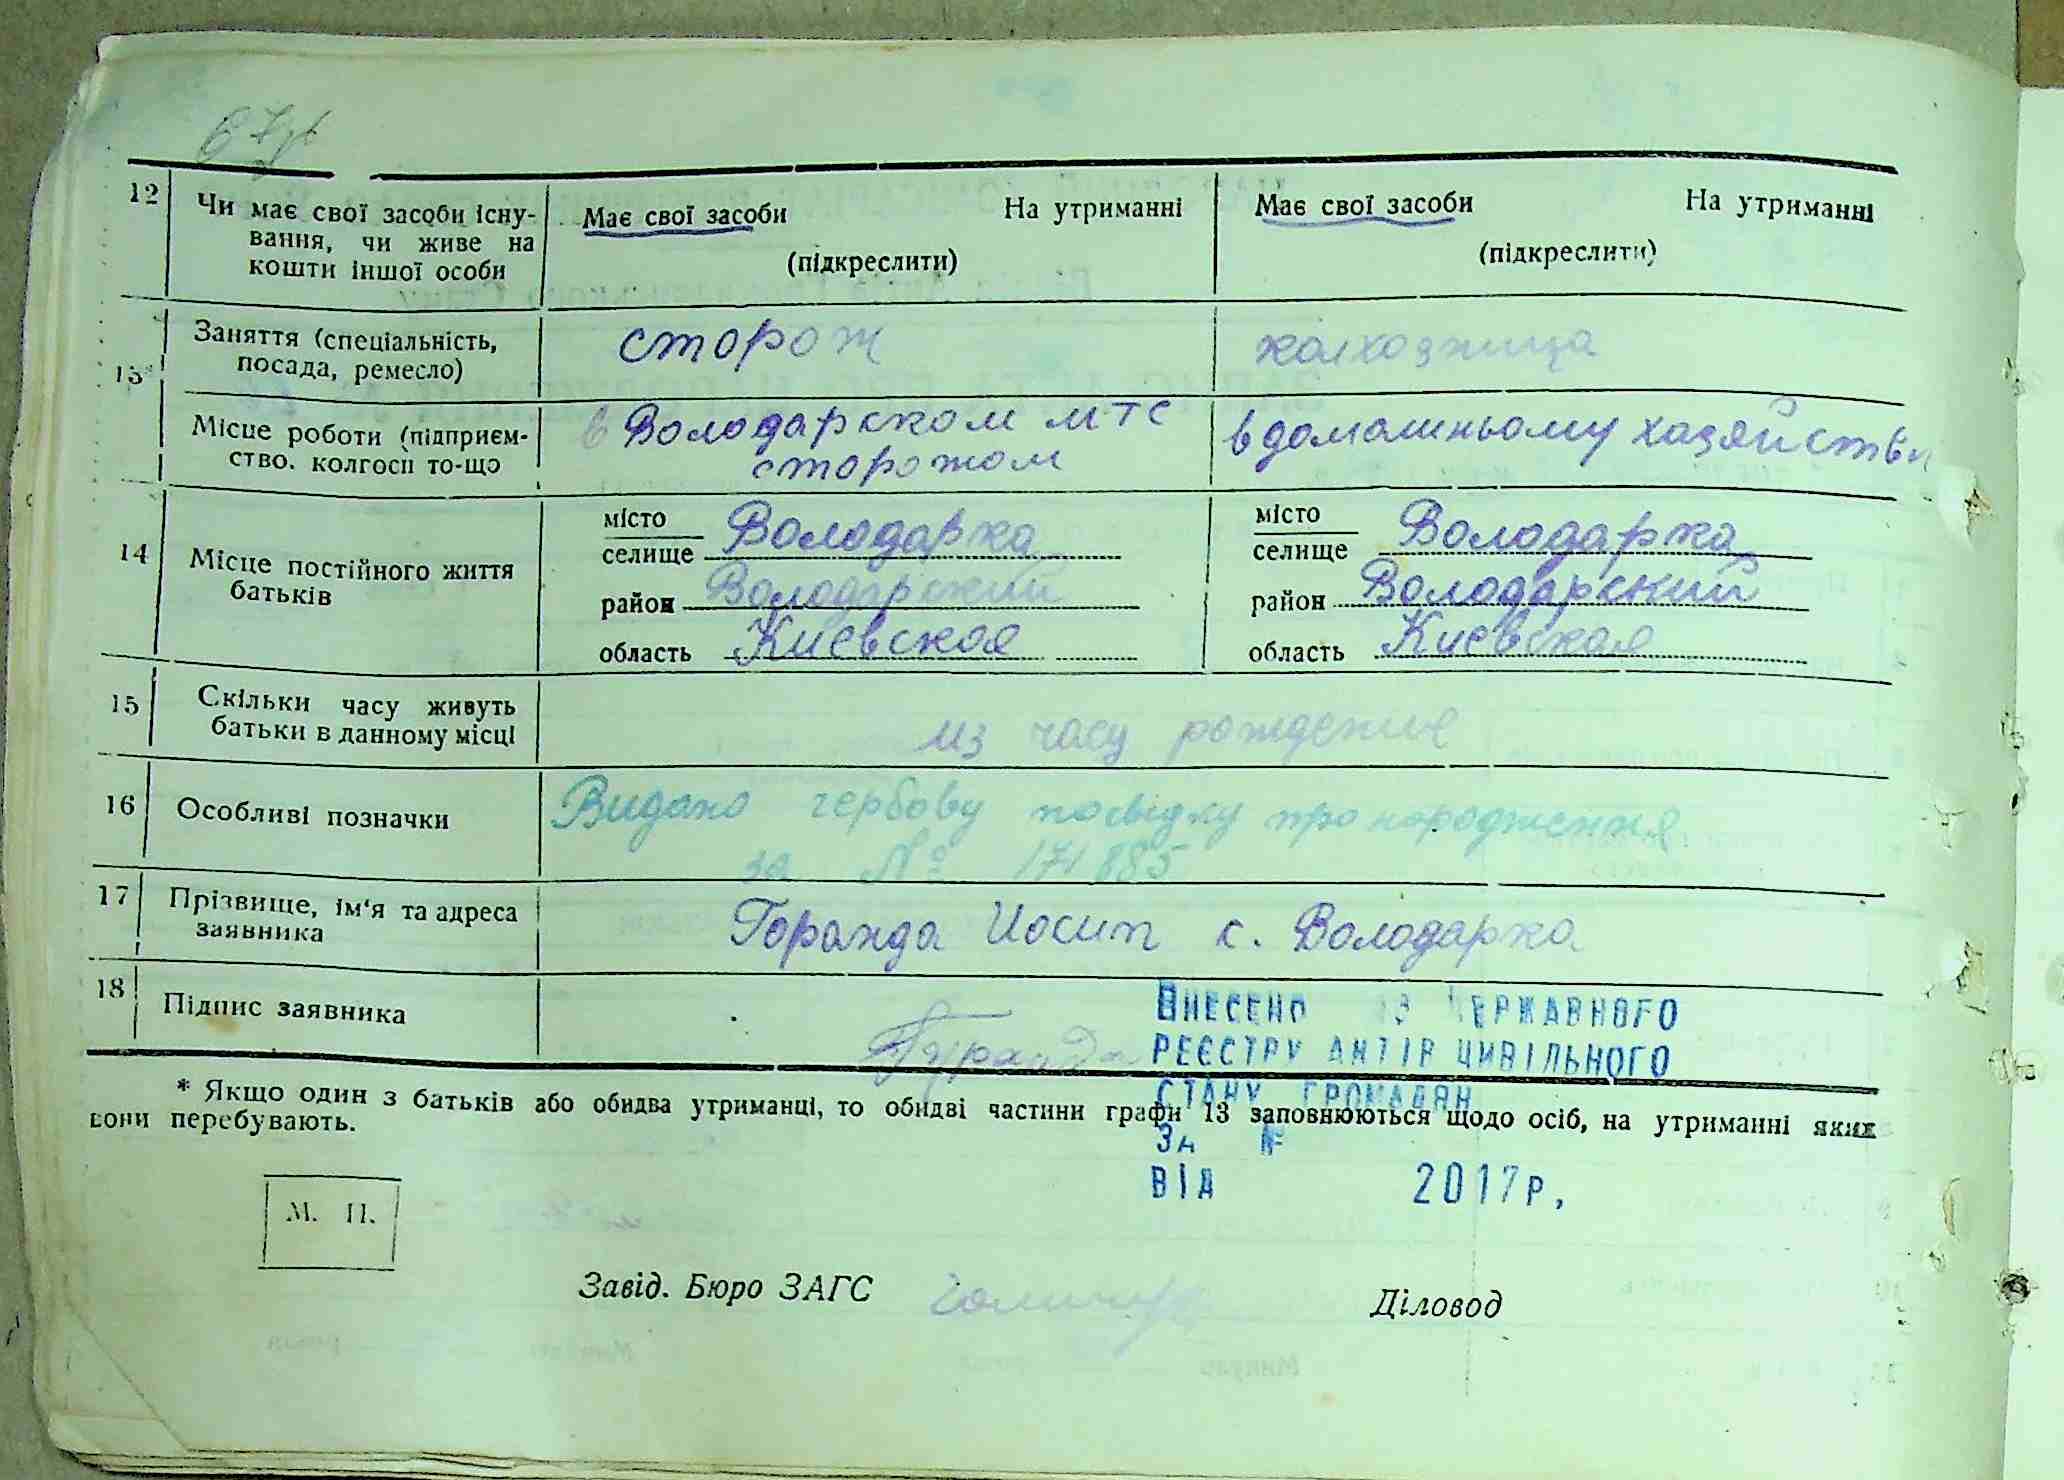 67
12 Чи має свої засоби існу- Має свої засоби На утриманні Має свої засоби На утриманні
вання, чи живе на (підкреслити) (підкреслити)
кошти іншої особи
13* Заняття (спеціальність, сторож колхозница
посада, ремесло)
Місце роботи (підприєм- в Володарском мтс в домашньому хазяйстві
ство, колгосп то-що сторожом
14 Місце постійного життя місто селище Володарка місто селище Володарка
батьків район Володарский район Володарский
область Киевская область Киевская
15 Скільки часу живуть из часу рождение
батьки в данному місці
16 Особливі позначки Видано гербову посвідку про народження
за № 171885
17 Прізвище, ім'я та адреса Горанда Иосип с. Володарка
заявника
18 Підпис заявника
ВНЕСЕНО ДЕРЖАВНОГО
РЕЄСТРУ АКТІВ ЦИВІЛЬНОГО
СТАНУ ГРОМАДЯН
* Якщо один з батьків або обидва утриманці, то обидві частини графи 13 заповнюються щодо осіб, на утриманні яких
вони перебувають.
ЗА №
ВІД 2017р,
М. П.
Завід. Бюро ЗАГС Діловод